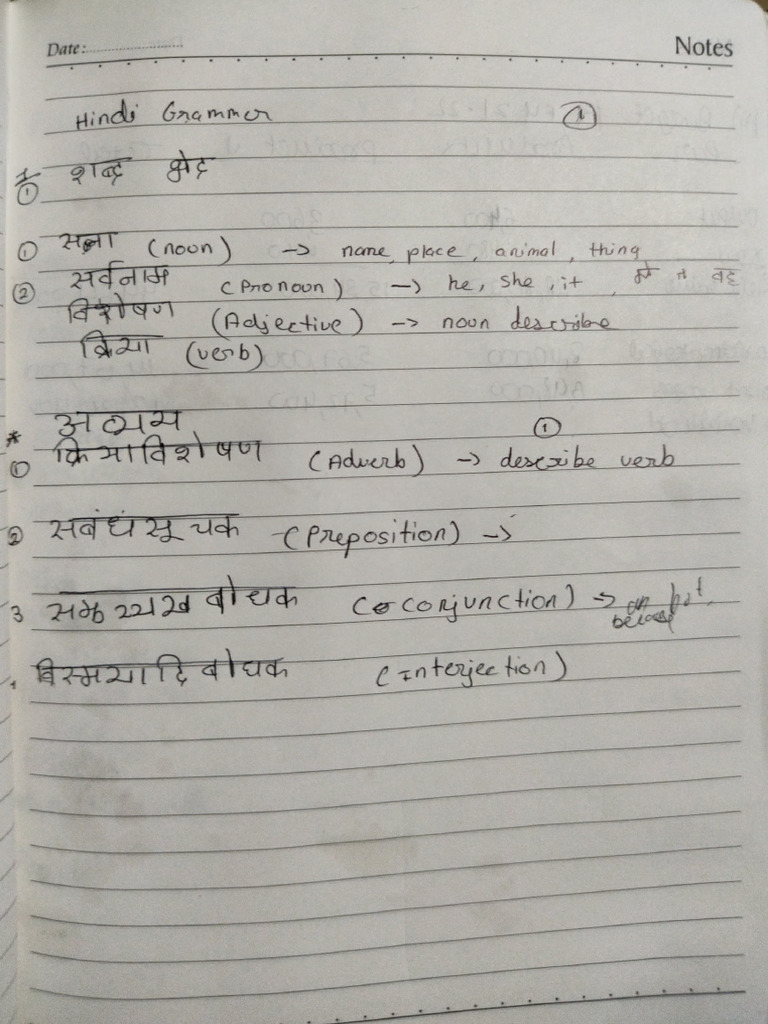 Date:
Notes
Hindi Grammer ①
① शब्द भेद
① सज्ञा (noun) -> name, place, animal, thing
② सर्वनाम (Pronoun) -> he, she, it, वह
विशेषण (Adjective) -> noun describe
क्रिया (verb)
* अव्यय ①
① क्रियाविशेषण (Adverb) -> describe verb
② सबंधंसूचक (Preposition) ->
3 बोधक (conjunction) ->
विस्मयादि बोधक (Interjection)